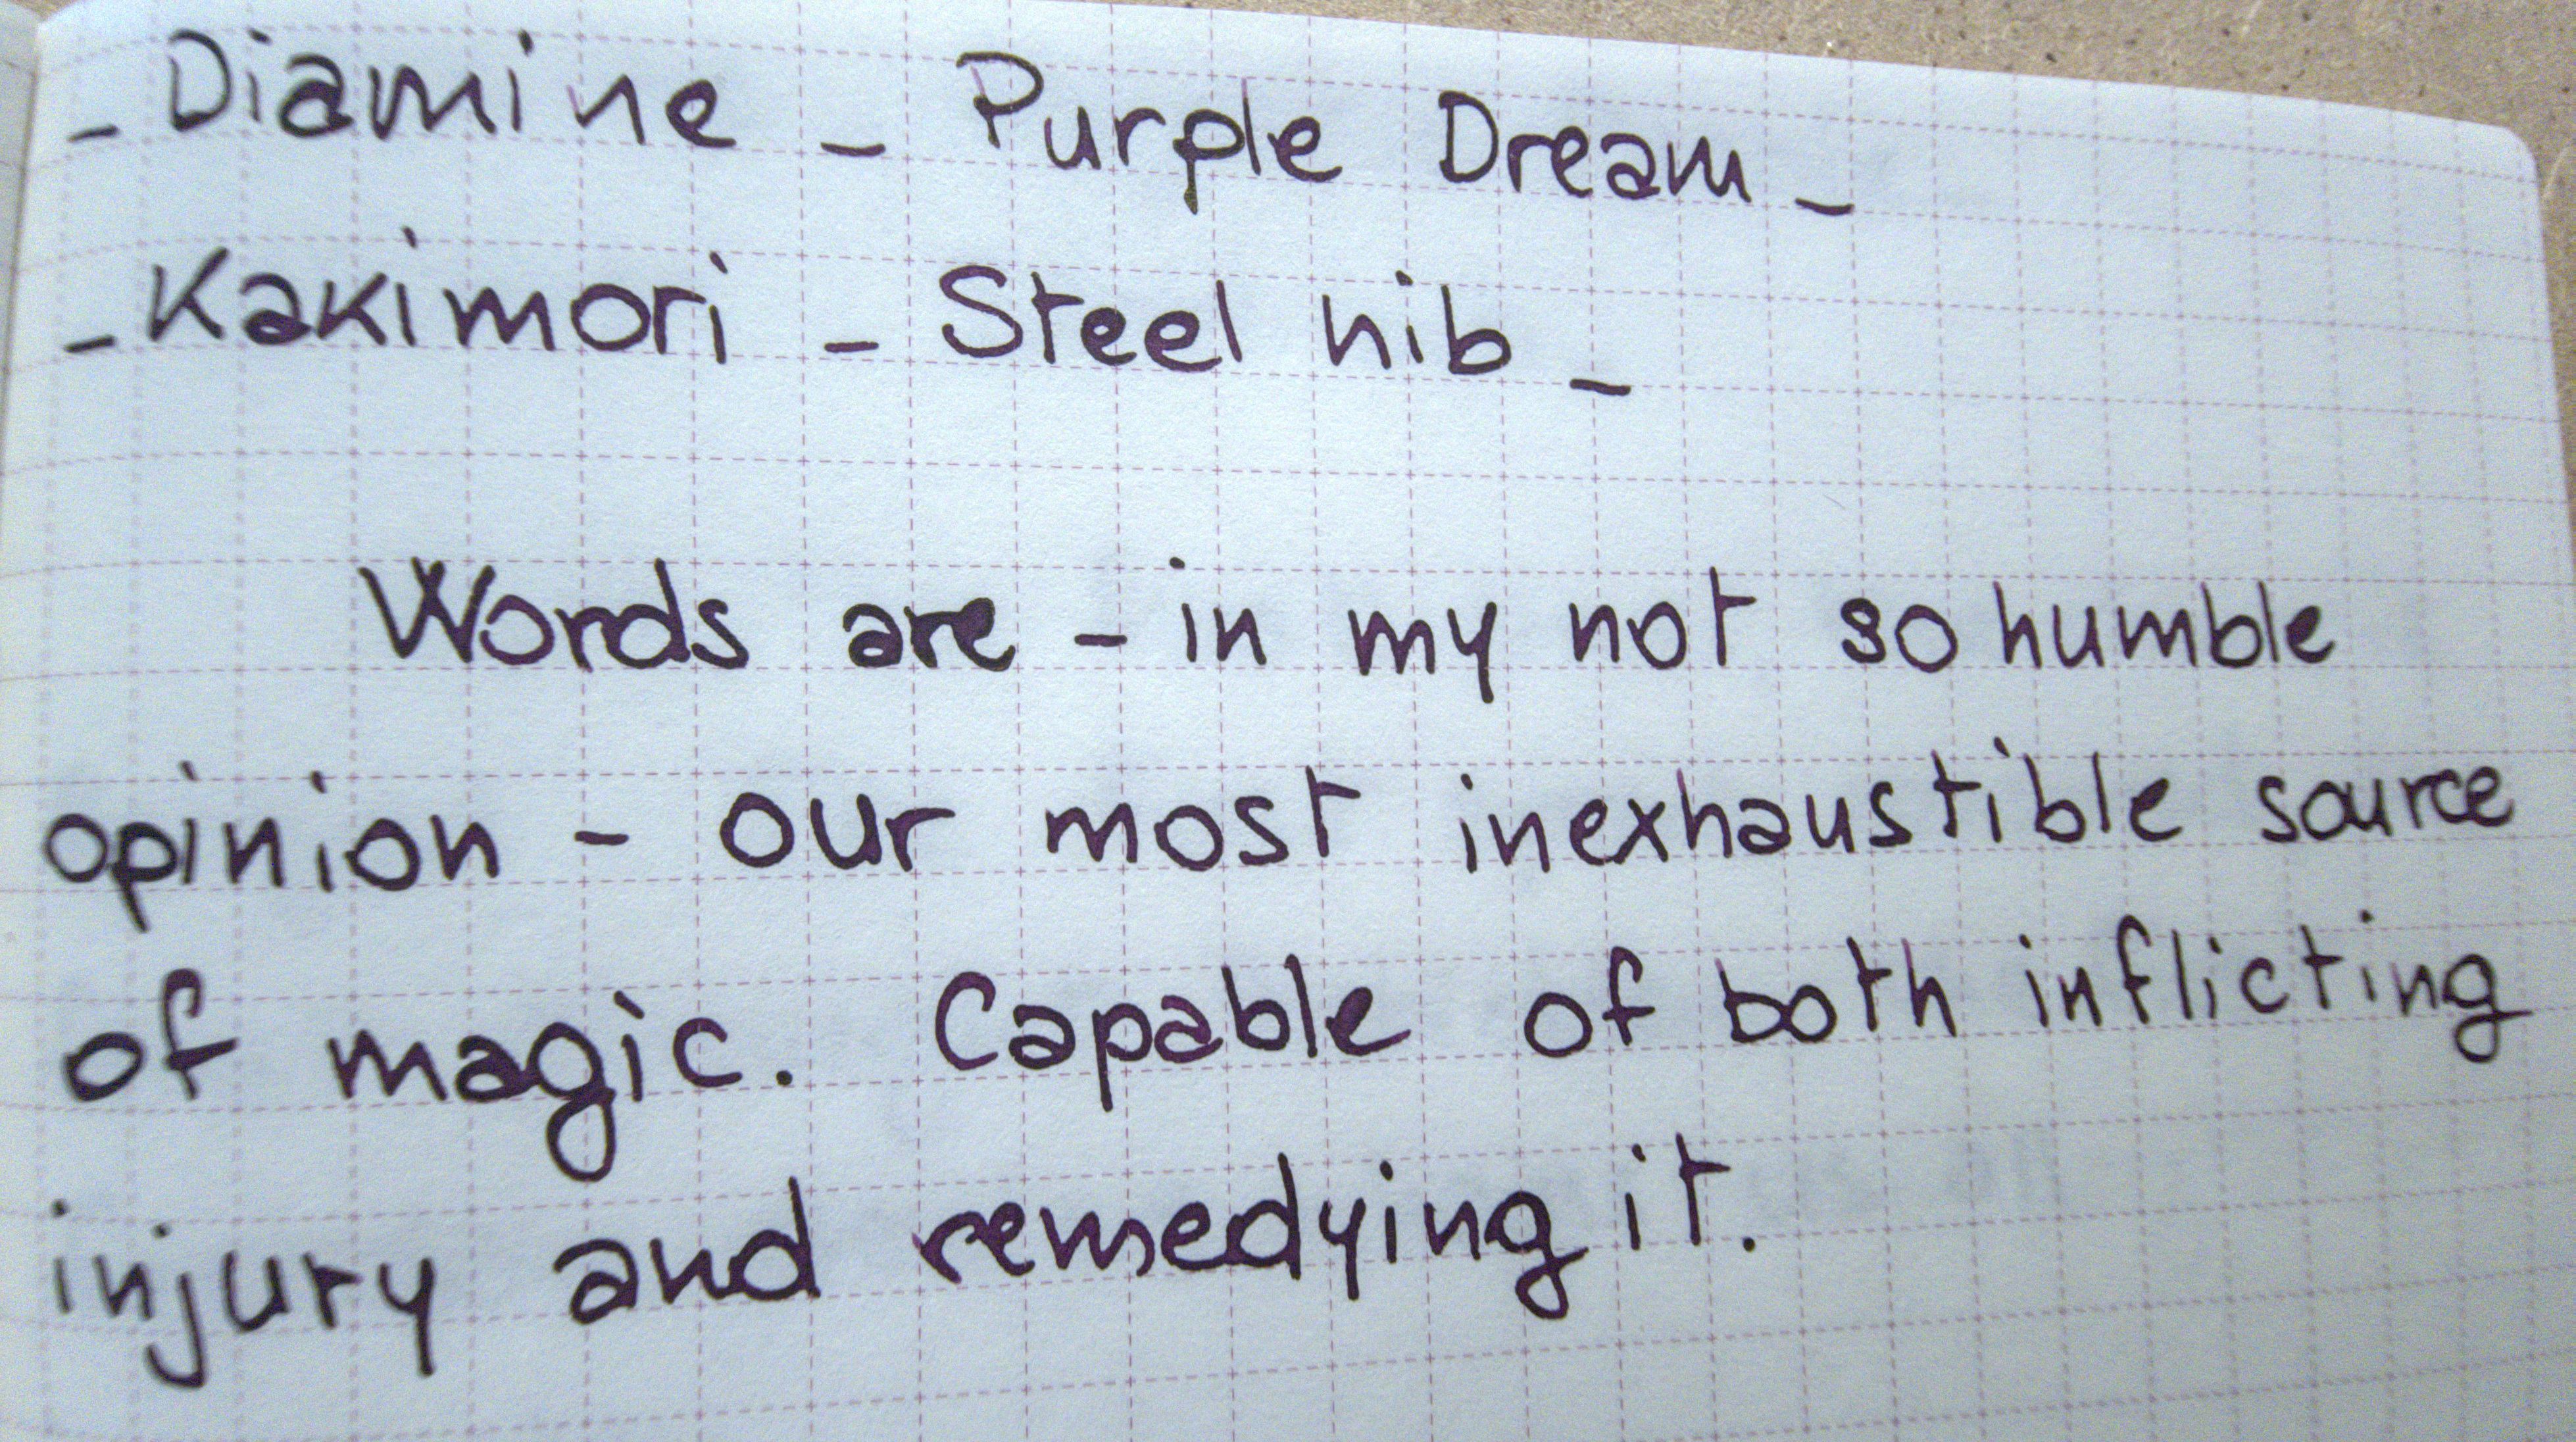 - Diamine - Purple Dream -
- Kakimori - Steel nib -
Words are - in my not so humble
opinion - our most inexhaustible source
of magic. Capable of both inflicting
injury and remedying it.